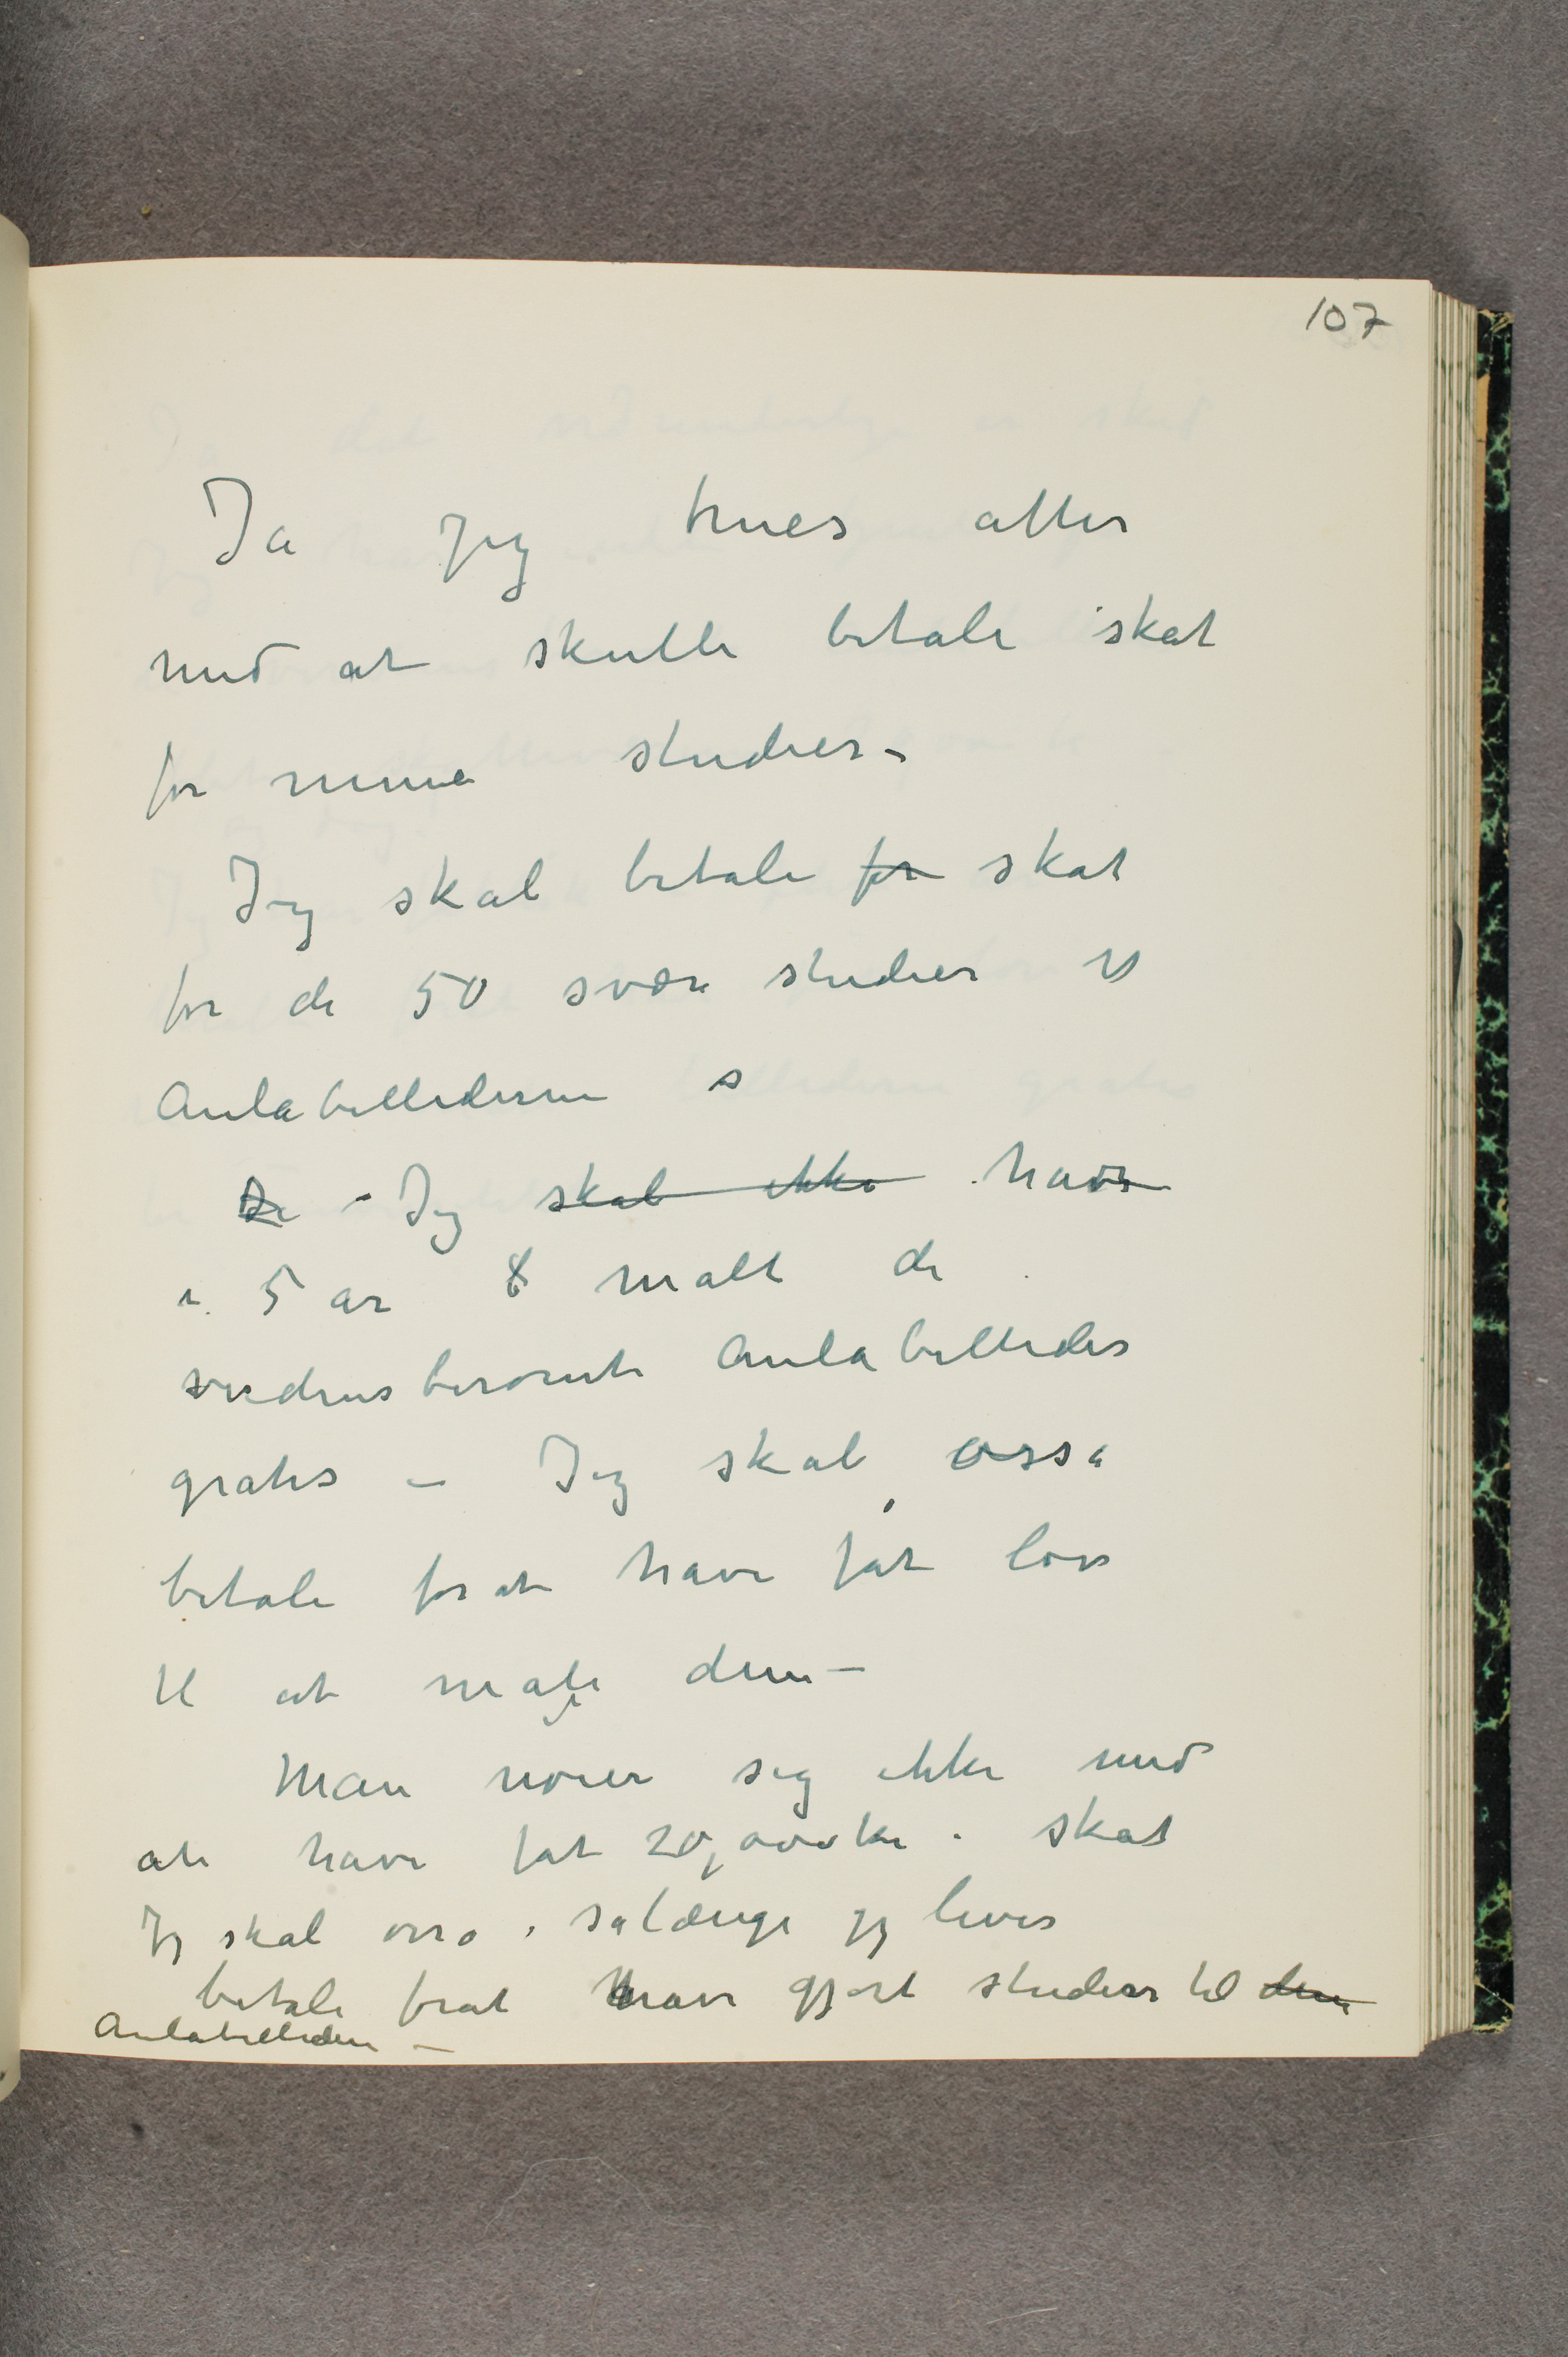 107
Ja jeg trues atter
med at skulle betale skat
for mine studier –
Jeg skal betale for skat
for de 50 svære studier til
Aulabillederne
De – Jeg skal ikke have
i 5 år malt de
verdensberømte Aulabilleder
gratis – Jeg skal også
betale forat have fåt lov
til at male dem –
Man nøier sig ikke med
at have fåt 20,000 kr i skat
Jeg skal osså sålænge jeg lever
betale forat have gjort studier til dem
Aulabilledene –